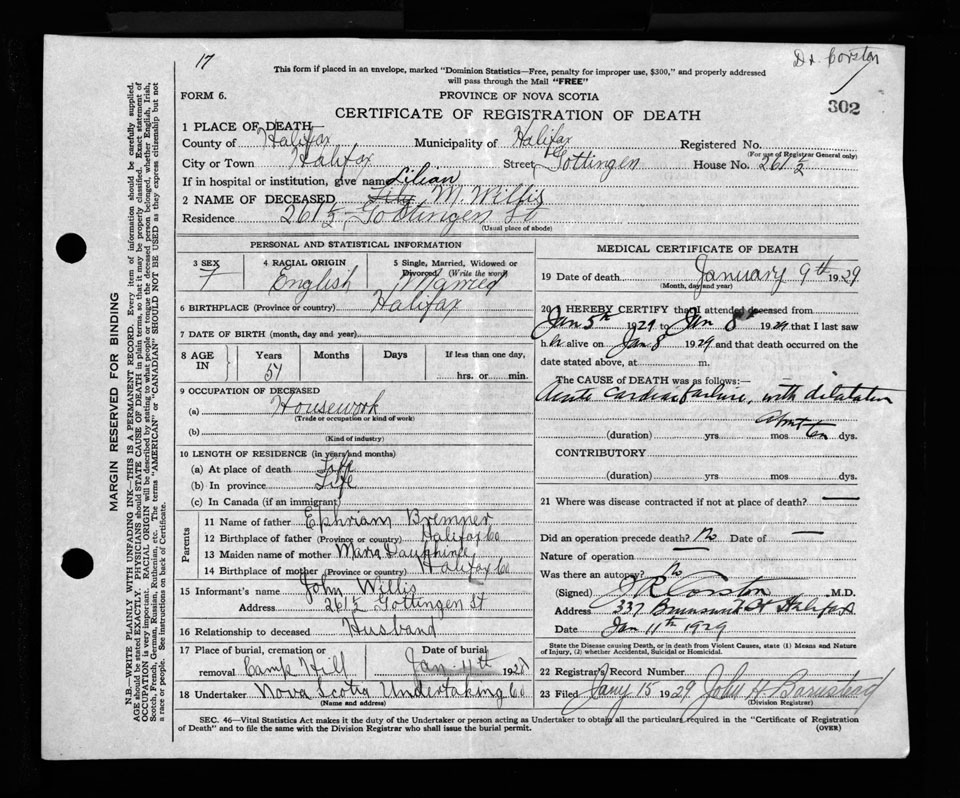 17
Dr Corston
This form if placed in an envelope, marked "Dominion Statistics—Free, penalty for improper use, $300," and properly addressed
will pass through the Mail "FREE"
FORM 6.
PROVINCE OF NOVA SCOTIA
302
CERTIFICATE OF REGISTRATION OF DEATH
1 PLACE OF DEATH—
County of Halifax Municipality of Halifax Registered No.
(For use of Registrar General only)
City or Town Halifax Street, Gottingen House No. 261½
If in hospital or institution, give name
Lilian
2 NAME OF DECEASED M. Willis
Residence 261½ Gottingen St
(Usual place of abode)
PERSONAL AND STATISTICAL INFORMATION
3 SEX 4 RACIAL ORIGIN 5 Single, Married, Widowed or
Divorced (Write the word)
F English Married
6 BIRTHPLACE (Province or country) Halifax
7 DATE OF BIRTH (month, day and year)
8 AGE IN Years Months Days If less than one day,
57 hrs. or min.
9 OCCUPATION OF DECEASED
(a) Housework
(Trade or occupation or kind of work)
(b)
(Kind of industry)
10 LENGTH OF RESIDENCE (in years and months)
(a) At place of death Life
(b) In province Life
(c) In Canada (if an immigrant)
Parents
11 Name of father Ephriam Bremner
12 Birthplace of father (Province or country) Halifax Co
13 Maiden name of mother Mary Dauphinee
14 Birthplace of mother (Province or country) Halifax Co
15 Informant's name John Willis
Address 261½ Gottingen St
16 Relationship to deceased Husband
17 Place of burial, cremation or Date of burial
removal Camp Hill Jan 11th 192
18 Undertaker Nova Scotia Undertaking Co
(Name and address)
MEDICAL CERTIFICATE OF DEATH
19 Date of death January 9th 1929
(Month, day and year)
20 I HEREBY CERTIFY that I attended deceased from
Jan 5th 1929 to Jan 8 1929 that I last saw
her alive on Jan 8 1929 and that death occurred on the
date stated above, at m.
The CAUSE OF DEATH was as follows:—
Acute Cardiac failure, with dilatation
about ten
(duration) yrs mos dys.
CONTRIBUTORY
(duration) yrs mos dys.
21 Where was disease contracted if not at place of death?
Did an operation precede death? No Date of
Nature of operation
Was there an autopsy? No
(Signed) Corston M.D.
Address 337 Brunswick St Halifax
Date Jan 11th 1929
State the Disease causing Death, or in death from Violent Causes, state (1) Means and Nature
of Injury, (2) whether Accidental, Suicidal or Homicidal.
22 Registrar's Record Number
23 Filed Jany 15 1929 John H Barnstead
(Division Registrar)
SEC. 46—Vital Statistics Act makes it the duty of the Undertaker or person acting as Undertaker to obtain all the particulars required in the "Certificate of Registration
of Death" and to file the same with the Division Registrar who shall issue the burial permit.
(OVER)
MARGIN RESERVED FOR BINDING
N.B.—WRITE PLAINLY WITH UNFADING INK—THIS IS A PERMANENT RECORD. Every item of information should be carefully supplied.
AGE should be stated EXACTLY. PHYSICIANS should STATE CAUSE OF DEATH in plain terms, so that it may be properly classified. Exact statement of
OCCUPATION is very important. RACIAL ORIGIN will be described by stating to what people or tongue the deceased person belonged, whether English, Irish,
Scotch, French, German, Russian, Ruthenian, etc. The terms "AMERICAN" or "CANADIAN" SHOULD NOT BE USED as they express citizenship but not
a race or people. See instructions on back of Certificate.